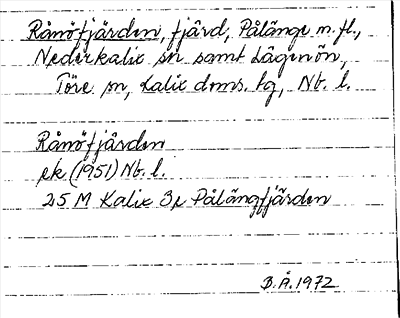 Rånöfjärden, fjärd, Pålänge m.fl.,
Nederkalix sn samt Lågenön,
Töre sn, Kalix dms. tg, Nb. l.
Rånöfjärden
ek (1951) Nb. l.
25 M Kalix 3e Pålängfjärden
B.Å. 1972